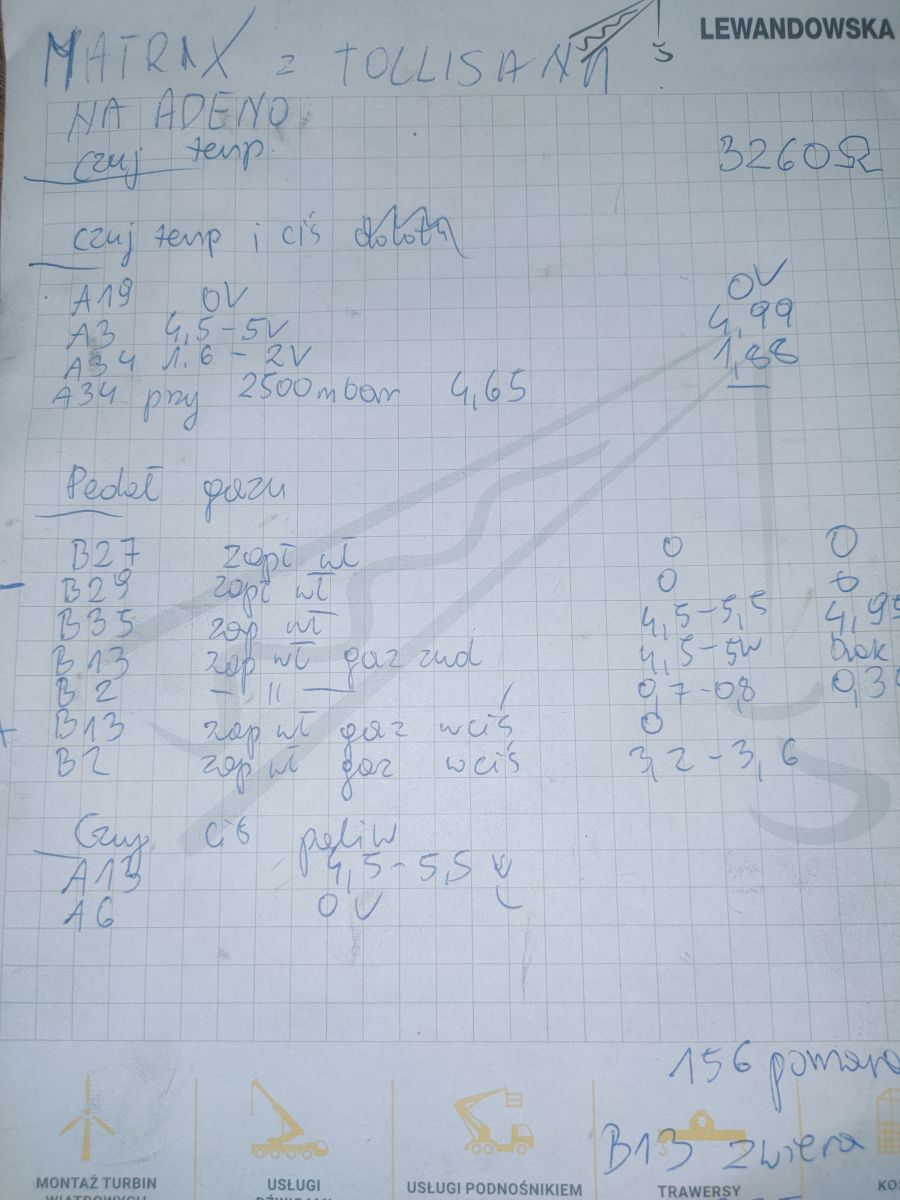 LEWANDOWSKA
MATRIX z TOLLISANA
NA ADENO
czuj temp. 3260Ω
czuj temp i ciś dolotu
A19 0V 0V
A3 4,5-5V 4,99
A34 1.6 - 2V 1,88
A34 przy 2500mbar 4,65
Pedał gazu
B27 zapł wł 0 0
B29 zapł wł 0 0
B35 zap wł 4,5-5,5 4,95
B13 zap wł gaz zwd 4,5-5V brak
B2 - 11 - 0,7-0,8 0,3
B13 zap wł gaz wciś 0
B2 zap wł gaz wciś 3,2-3,6
Czuj ciś paliw
A13 4,5-5,5 V
A6 0V
156 pomara
B13 zwiera
MONTAŻ TURBIN
WIATROWYCH
USŁUGI
DŹWIGAMI
USŁUGI PODNOŚNIKIEM
TRAWERSY
KO